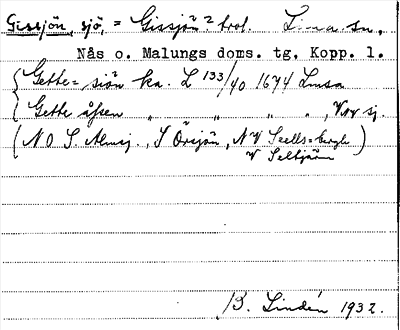 Gissjön, sjö, = Gissjön 2 trol. Lima sn,
Nås o. Malungs doms. tg, Kopp. l.
Gette-sjön ka. L 133/40 1674 Lmsa
Gette åsen " " " " , V om sj.
(NO S. Almsj., S Örsjön, NV Skells-bergh)
V Seltjärn
B. Lindén 1932.